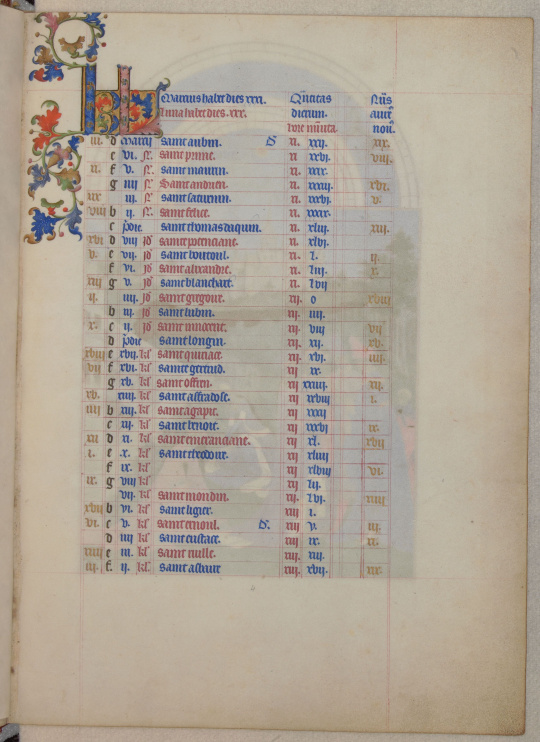 KL Marcius habet dies xxxi. Qntitas Nūs
Luna habet dies. xxx. dierum. aure
hore minuta nou.
iii. d Marcii saint aubin. D xi. xxi. xix.
e vi. saint prime. xi. xxvi. viii.
xi. f v. saint maurin. xi. xxix.
g iiii saint andrieu. xi. xxxiii xvi.
xix iii. saint saturnin. xi. xxxvi. v.
viii b ii saint felice. xi. xxxix.
c pdie saint thomas daquin. xi. xliii. xiii.
xvi d viii id saint potenciane. xi. xlvi.
v. e vii. id saint boitoul. xi. l. ii.
f vi. id saint alixandre. xi. liii. x.
xiii g v. id saint blanchart. xi. lvii
ii. iiii. id saint gregoire. xii. o xviii
b iii. id saint lubin. xii. iiii.
x. c ii. id saint innocent. xii. viii vii
d pdie saint longin. xii. xii. xv.
xviii e xvii. kl saint quiriace. xii. xvi. iiii.
vii f xvi. kl saint gertrud. xii xx.
g xv. kl saint offrien. xii xxiiii. xii.
xv. xiiii. kl saint xii xxviii i.
iiii b xiii. kl saint agapit. xii xxxii
c xii. kl saint benoit. xii xxxvi ix.
xii d xi. kl saint emeranciane. xii xl. xvii
i. e x. kl saint theodore. xii xliiii
f ix. kl xii xlviii vi.
ix. g viii kl xii lii.
vii. kl saint mondin. xii. lvi. xiiii
xvii b vi. kl saint ligier. xiii i.
vi. c v. kl saint ernoul. D. xiii v. iii.
d iiii kl saint eustace. xiii ix. xi.
xiiii e iii. kl saint eulle. xiii. xiii.
iii. f. ii. kl saint xiii. xvii. xix.